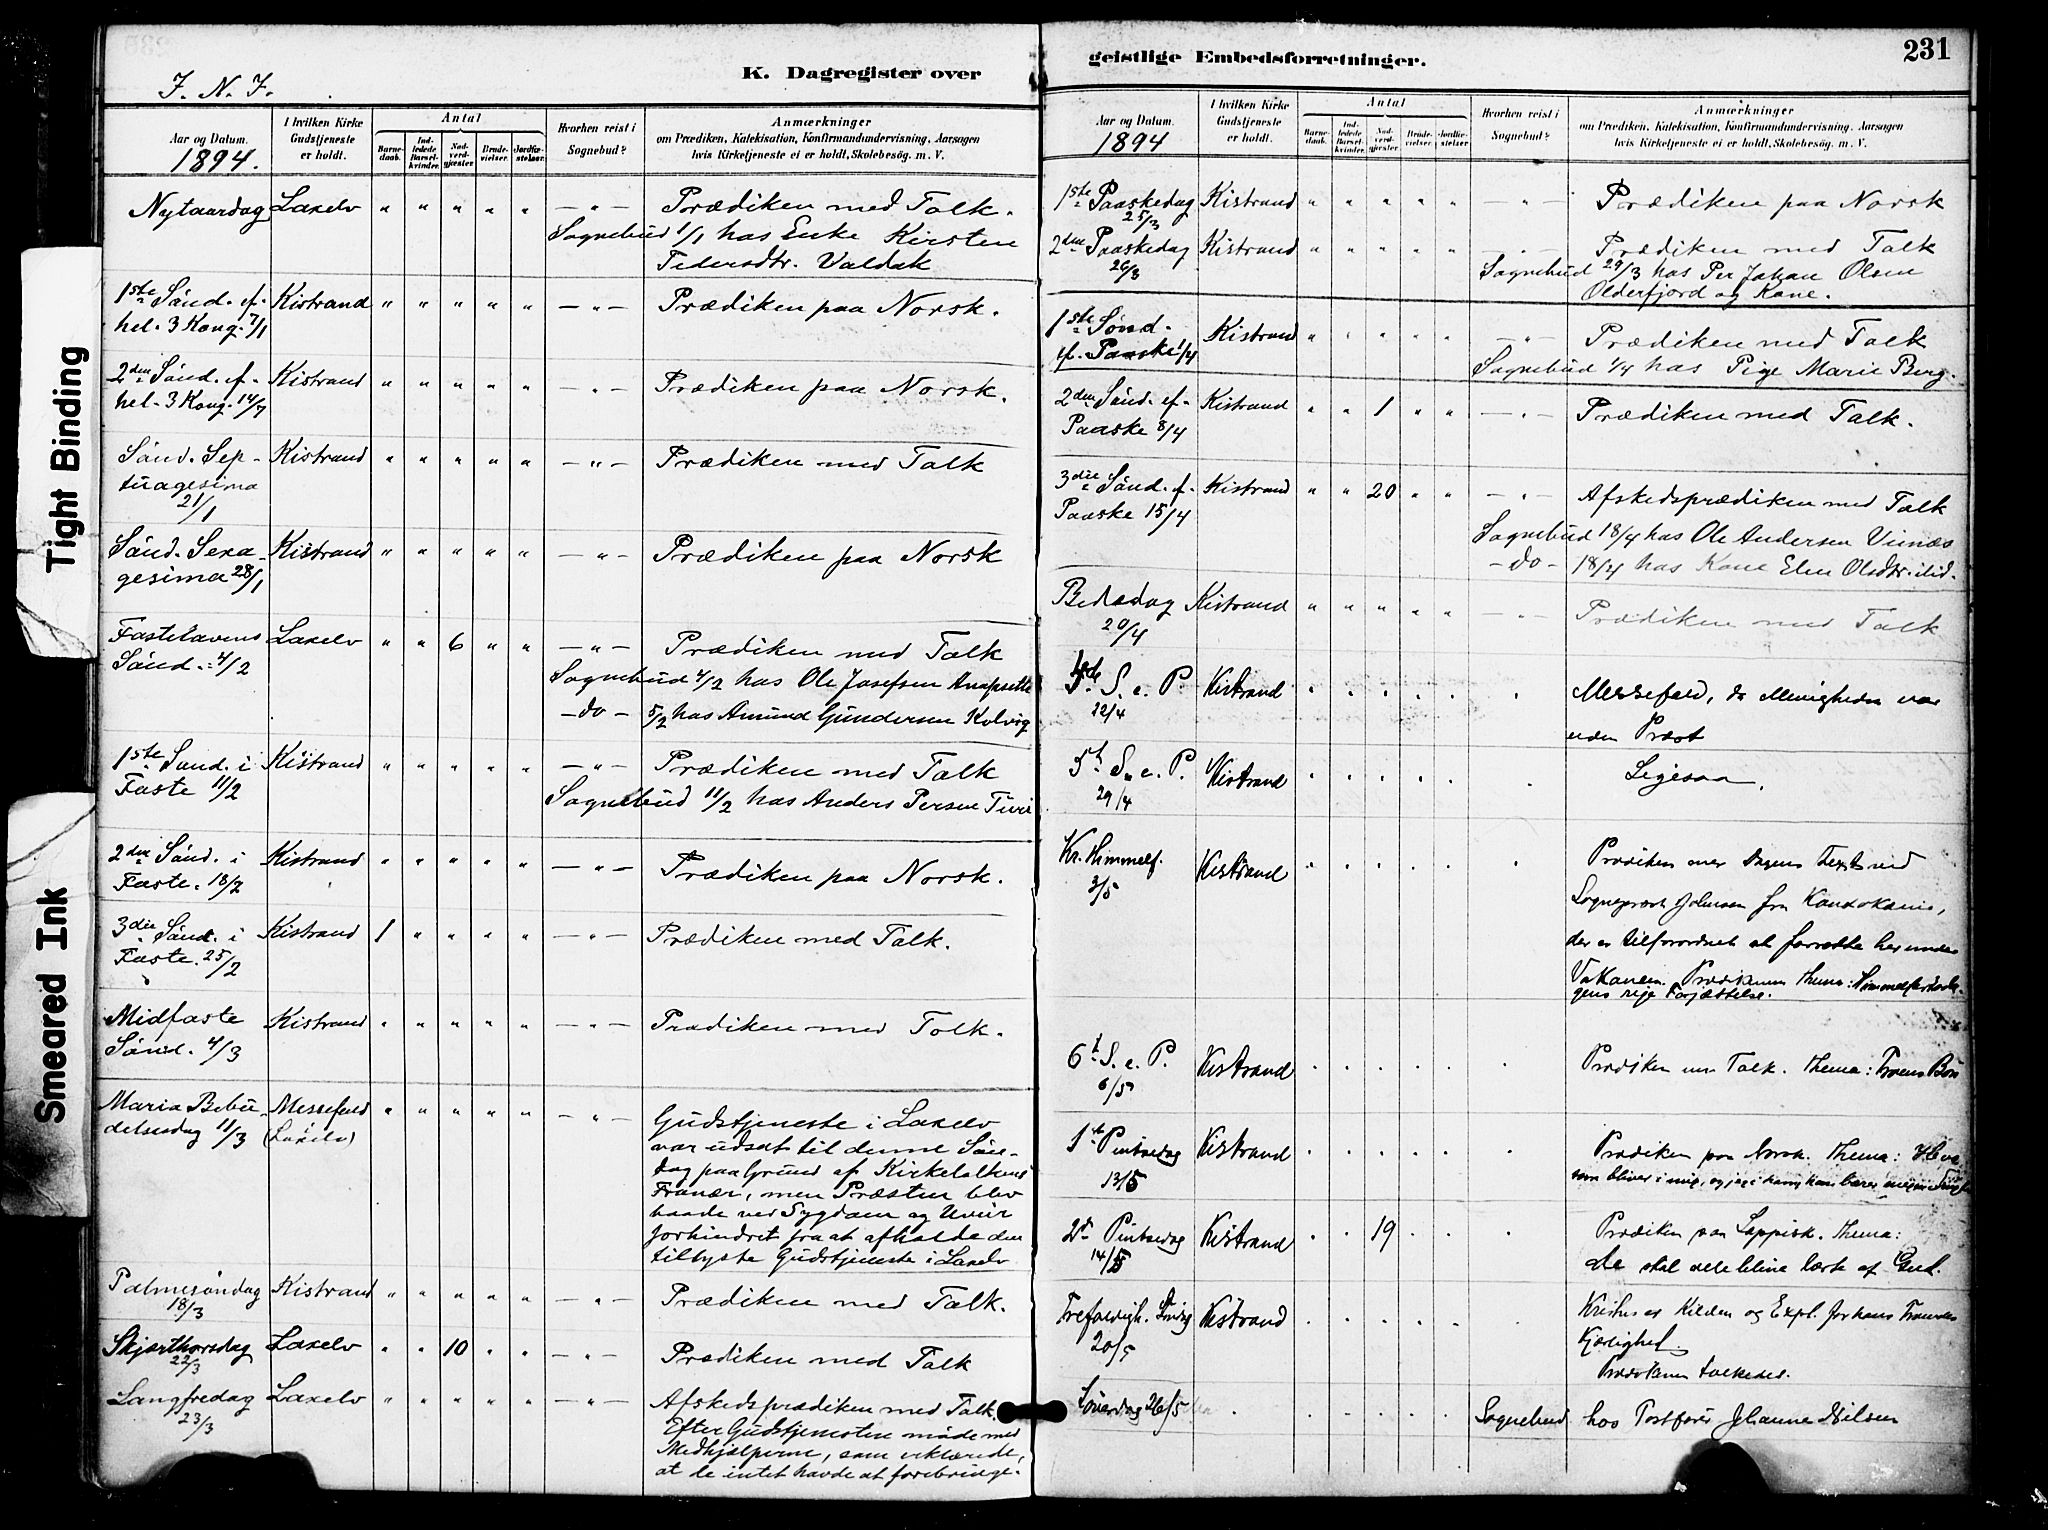 Tight Binding
Smeared Ink
K. Dagregister over
J. N. J.
Aar og Datum.
1894.
I hvilken Kirke Gudstjeneste er holdt.
Antal
Barnedaab.
Indledede Barselkvinder.
Nadverdgjester
Brudevielser.
Jordfæstelser.
Hvorhen reist i Sognebud?
Anmærkninger
om Prædiken, Katekisation, Konfirmandundervisning, Aarsagen
hvis Kirketjeneste ei er holdt, Skolebesøg. m. V.
Nytaardag Laxelv " " " " " — " — Prædiken med Tolk.
Sognebud 1/1 hos Enke Kirsten
Pedersdtr. Valdak
1ste Sönd. ef. Kistrand " " " " " — " — Prædiken paa Norsk.
hel. 3 Kong. 7/1
2den Sönd. ef. Kistrand " " " " " — " — Prædiken paa Norsk.
hel. 3 Kong. 14/1
Sönd. Sep- Kistrand " " " " " — " — Prædiken med Tolk
tuagesima
21/1
Sönd. Sexa- Kistrand " " " " " — " — Prædiken paa Norsk
gesima 28/1
Fastelavens Laxelv " " 6 " " — " — Prædiken med Tolk
Sönd. 4/2
Sognebud 4/2 hos Ole Josefsen
— do — 5/2 hos Amund Gundersen Kolvig
1ste Sönd. i Kistrand " " " " " — " — Prædiken med Tolk
Faste 11/2
Sognebud 11/2 hos Anders Persen
2den Sönd. i Kistrand " " " " " — " — Prædiken paa Norsk.
Faste. 18/2
3die Sönd. i Kistrand 1 " " " " — " — Prædiken med Tolk.
Faste. 25/2
Midfaste Kistrand " " " " " — " — Prædiken med Tolk.
Sönd. 4/3
Maria Bebu- Messefald " " " " " — " — Gudstjeneste i Laxelv
delsesdag 11/3 (Laxelv)
var udsat til denne Sön-
dag paa Grund af Kirketolkens
Fravær, men Præsten blev
baade ved Sygdom og Uveir
forhindret fra at afholde den
tillyste Gudstjeneste i Laxelv
Palmesöndag Kistrand " " " " " — " — Prædiken med Tolk.
18/3
Skjærthorsdag Laxelv " " 10 " " — " — Prædiken med Tolk
22/3
Langfredag Laxelv " " " " " — " — Afskedsprædiken med Tolk.
23/3
Efter Gudstjenesten möde med
Medhjælperne, som erklærede,
at de intet havde at forebringe.
geistlige Embedsforretninger.
231
Aar og Datum.
1894
I hvilken Kirke Gudstjeneste er holdt.
Antal
Barnedaab.
Indledede Barselkvinder.
Nadverdgjester
Brudevielser.
Jordfæstelser
Hvorhen reist i Sognebud?
Anmærkninger
om Prædiken, Katekisation, Konfirmandundervisning, Aarsagen
hvis Kirketjeneste ei er holdt, Skolebesøg. m. V.
1ste Paaskedag Kistrand " " " " " — " — Prædiken paa Norsk
25/3
2den Paaskedag Kistrand " " " " " — " — Prædiken med Tolk
26/3
Sognebud 29/3 hos Per Johan Olsen
Olderfjord og Kone.
1ste Sönd. Kistrand " " " " " — " — Prædiken med Tolk
ef. Paaske 1/4
Sognebud 1/4 hos Pige Marie Berg.
2den Sönd. ef. Kistrand " " 1 " " — " — Prædiken med Tolk.
Paaske 8/4
3die Sönd. ef. Kistrand " " 20 " " — " — Afskedsprædiken med Tolk
Paaske 15/4
Sognebud 18/4 hos Ole Andersen
— do — 18/4 hos Kone Elen Olsdtr.
Bededag Kistrand " " " " " — " — Prædiken med Tolk
20/4
S. e. P. Kistrand " " " " " " Messefald, da Menigheden var
22/4 uden Præst
5t S. e. P. Kistrand " " " " " " Ligesaa.
29/4
Kr. Himmelf. Kistrand " " " " " " Prædiken over Dagens Text ved
3/5
Sognepræst Johnsen fra Kautokeino,
der er tilforordnet at forrette her under
Vakancen. Prædikenens Thema:
Forjættelse.
6t S. e. P. Kistrand " " " " " " Prædiken med Tolk. Thema: Troens Bön
6/5
1ste Pintsedag Kistrand " " " " " " Prædiken paa Norsk. Thema: Hvo
13/5 som bliver i mig, og jeg i ham, han bærer megen Frugt
2d Pintsedag Kistrand " " 19 " " " Prædiken paa Lappisk. Thema:
14/5 de skal alle blive lærte af Gud.
Trefoldigh. Söndag Kistrand " " " " " " Kristus er Kilden og
20/5 Kjærlighed.
Prædikenen tolkedes.
Löverdag 26/5 " " " " " Sognebud hos Postförer Johanne Nilsen